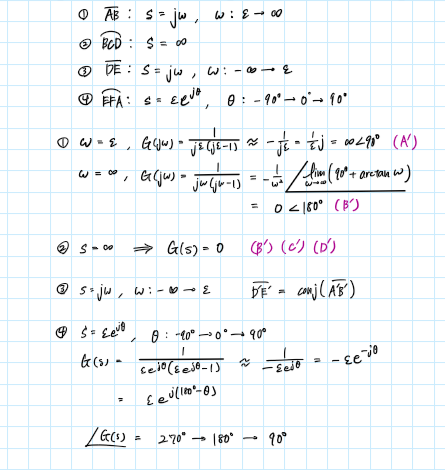 ① A̅B̅ : s = jω , ω : ε → ∞
② B͡CD : s = ∞
③ D̅E̅ : s = jω , ω : -∞ → ε
④ E͡FA : s = εe^{jθ} , θ : -90° → 0° → 90°
① ω = ε , G(jω) = 1/(jε(jε-1)) ≈ -1/(jε) = (1/ε)j = ∞∠90° (A')
ω = ∞ , G(jω) = 1/(jω(jω-1)) = -1/ω² ∠lim_{ω→∞}(90° + arctan ω)
= 0∠180° (B')
② s = ∞ ⟹ G(s) = 0 (B') (C') (D')
③ s = jω , ω : -∞ → ε D̅'E̅' = conj(A̅'B̅')
④ s = εe^{jθ} , θ : -90° → 0° → 90°
G(s) = 1/(εe^{jθ}(εe^{jθ}-1)) ≈ 1/(-εe^{jθ}) = -εe^{-jθ}
= εe^{j(180°-θ)}
∠G(s) = 270° → 180° → 90°